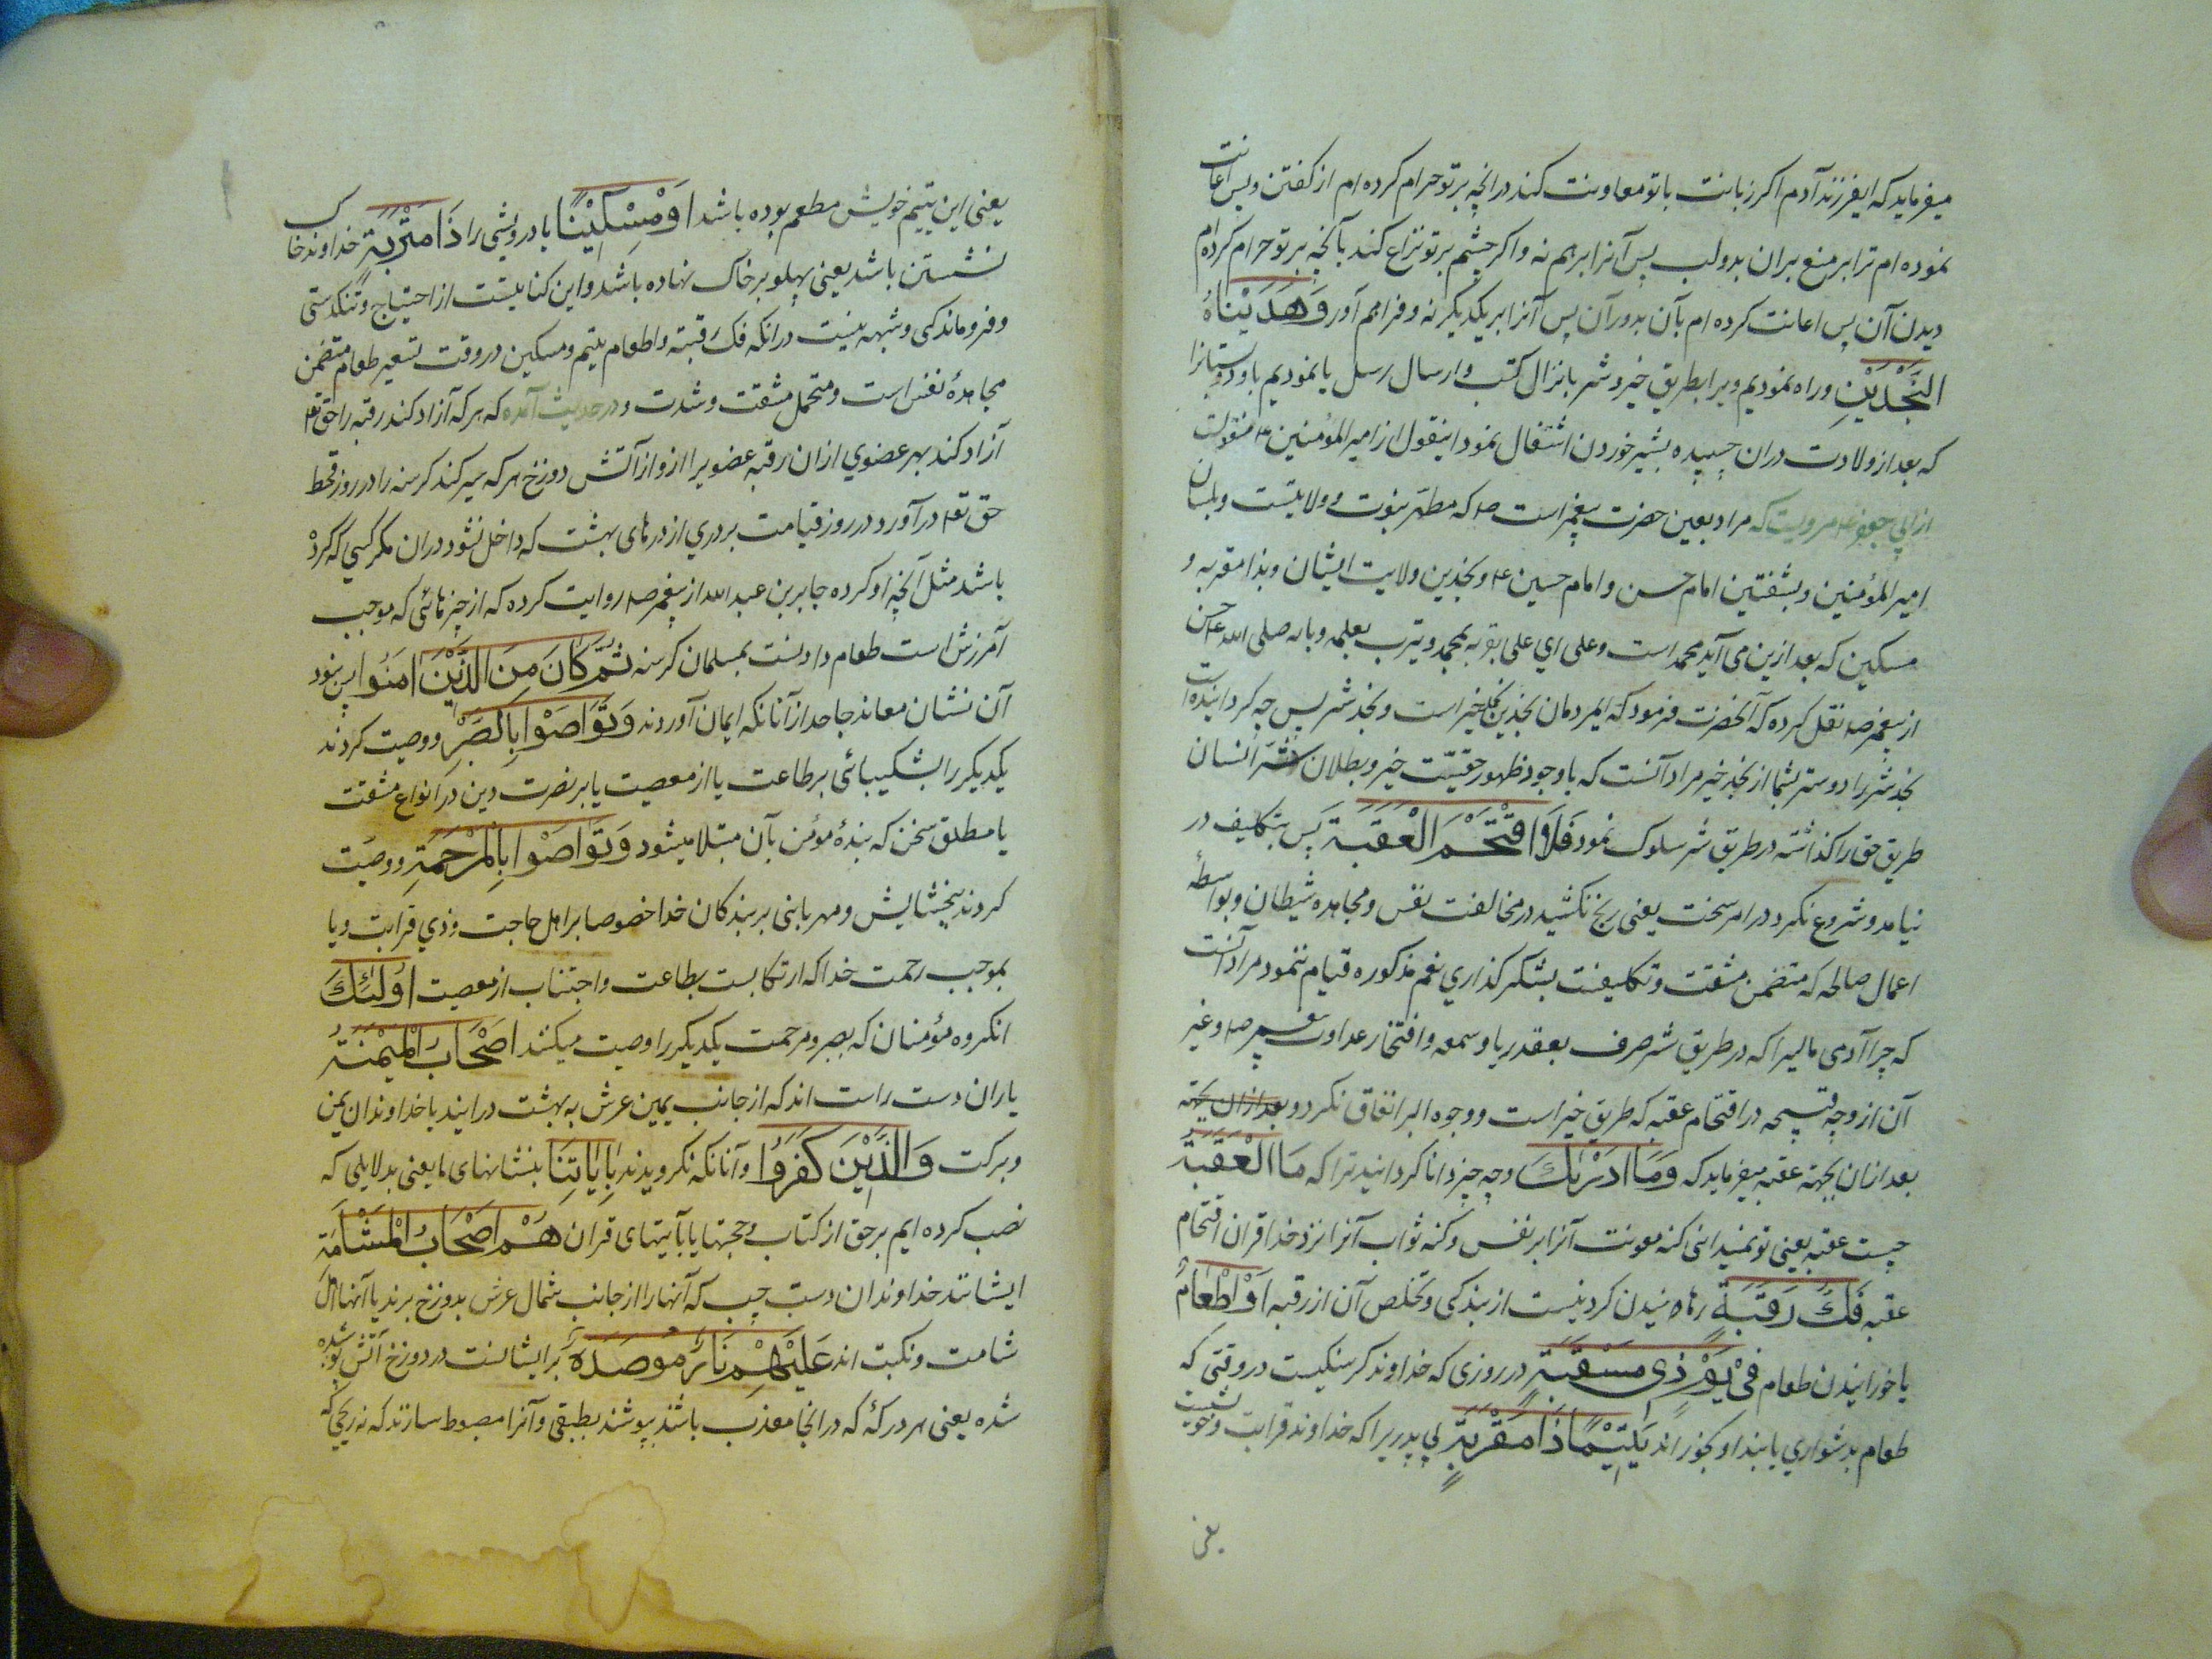 میفرماید که ایفرزند آدم اکر زبانت باتو معاونت کند در انچه بر تو حرام کرده ام از کفتن پس اعانت
نموده ام ترا بر منع بران بدو لب پس آنرا بر هم نه و اکر چشم بر تو نزاع کند بآنچه بر تو حرام کرده ام
دیدن آن پس اعانت کرده ام بآن بدو آن پس آنرا بر یکدیکر نه و فراهم آور وَهَدَيْنَاهُ
النَّجْدَيْنِ و راه نمودیم ویرا بطریق خیر و شر بانزال کتب و ارسال رسل یا نمودیم باو دو پستانرا
که بعد از ولادت دران چسپیده بشیر خوردن اشتغال نمود اینقول از امیر المؤمنین ع منقولست
از ابی جعفر ع مرویست که مراد بعین حضرت پیغمبر است ص که مظهر نبوت و ولایتست و بلسان
امیر المؤمنین و بشفتین امام حسن و امام حسین ع و بنجدین ولایت ایشان و بذا مقربه و
مسکین که بعد ازین می آید محمد است و علی ای علی بقربه بمحمد و یترب بعلمه و بابه صلی الله ع حسن
از پیغمبر ص نقل کرده که آنحضرت فرمود که ایمردمان نجدین نجد خیر است و نجد شر پس چه کردانیده است
نجد شر را دوستر بشما از نجد خیر مراد آنست که با وجود ظهور حقیّت خیر و بطلان شر انسان
طریق حق را کذاشته در طریق شر سلوک نمود فَلَا اقْتَحَمَ الْعَقَبَةَ پس بتکلیف در
نیامد و شروع نکرد در امر سخت یعنی رنج نکشید در مخالفت نفس و مجاهده شیطان و بواسطهٔ
اعمال صالحه که متضمن مشقت و تکلیفت بشکر کذاری نعم مذکوره قیام ننمود مراد آنست
که چرا آدمی مالیرا که در طریق شر صرف بعقد ریا و سمعه و افتخار عداوت پیغمبر ص و غیر
آن از وجوه قبیحه در اقتحام عقبه که طریق خیر است و وجوه البر انفاق نکرد و بعد ازان بجهته
بعد ازان بجهته عقبه میفرماید که وَمَا اَدْرٰیكَ و چه چیز دانا کردانید ترا که مَا الْعَقَبَةُ
چیست عقبه یعنی تو نمیدانی کنه معونت آنرا بر نفس و کنه ثواب آنرا نزد خدا قران اقتحام
عقبه فَكُّ رَقَبَةٍ رهانیدن کردنیست از بندکی و تخلص آن از رقبه اَوْ اِطْعَامٌ
یا خورانیدن طعام فِي يَوْمٍ ذِي مَسْغَبَةٍ در روزی که خداوند کرسنکیست در وقتی که
طعام بدشواری یابند او بخوراند يَتِيْمًا ذَا مَقْرَبَةٍ بی پدریرا که خداوند قرابت و خویشیست
یعنی
یعنی این یتیم خویش مطعم بوده باشد اَوْ مِسْكِيْنًا یا درویشی را ذَا مَتْرَبَةٍ خداوند خاک
نشستن باشد یعنی پهلو بر خاک نهاده باشد و این کنایتست از احتیاج و تنکدستی
و فروماندکی و شبهه نیست در انکه فک رقبه و اطعام یتیم و مسکین در وقت تسعیر طعام متضمن
مجاهدهٔ نفس است و متحمل مشقت و شدت و در حدیث آمده که هر که آزاد کند رقبه را حق تع
آزاد کند بهر عضوی ازان رقبه عضویرا ازو از آتش دوزخ هر که سیر کند کرسنه را در روز قحط
حق تع در آورد در روز قیامت بردری از درهای بهشت که داخل نشود دران مکر کسی که کرده
باشد مثل آنچه او کرده جابر بن عبد الله از پیغمبر ص روایت کرده که از چیزهائی که موجب
آمرزش است طعام دادنست بمسلمان کرسنه ثُمَّ كَانَ مِنَ الَّذِيْنَ اٰمَنُوا پس نبود
آن نشان معاند جاحد از آنانکه ایمان آوردند وَتَوَاصَوْا بِالصَّبْرِ و وصیت کردند
یکدیکر را بشکیبائی بر طاعت یا از معصیت یا بر نصرت دین در انواع مشقت
یا مطلق سخن که بندهٔ مؤمن بآن مبتلا میشود وَتَوَاصَوْا بِالْمَرْحَمَةِ و وصیت
کردند ببخشایش و مهربانی بر بندکان خدا خصوصا بر اهل حاجت و ذی قرابت و یا
بموجب رحمت خدا که ارتکابست بطاعت و اجتناب از معصیت اُولٰئِكَ
انکروه مؤمنان که بصبر و مرحمت یکدیکر را وصیت میکنند اَصْحَابُ الْمَيْمَنَةِ
یاران دست راست اند که از جانب یمین عرش به بهشت درایند یا خداوندان یمن
و برکت وَالَّذِيْنَ كَفَرُوا و آنانکه نکرویدند بِاٰيَاتِنَا بنشانهای ما یعنی بدلایلی که
نصب کرده ایم بر حق از کتاب و حجتها یا بآیتهای قران هُمْ اَصْحَابُ الْمَشْاَمَةِ
ایشانند خداوندان دست چپ که آنها را از جانب شمال عرش بدوزخ برند یا آنها اهل
شامت و نکبت اند عَلَيْهِمْ نَارٌ مُوصَدَةٌ بر ایشانست در دوزخ آتش پوشیده
شده یعنی هر درکهٔ که در انجا معذب باشند بپوشند بطبقی و آنرا مضبوط سازند که نه ریحی که